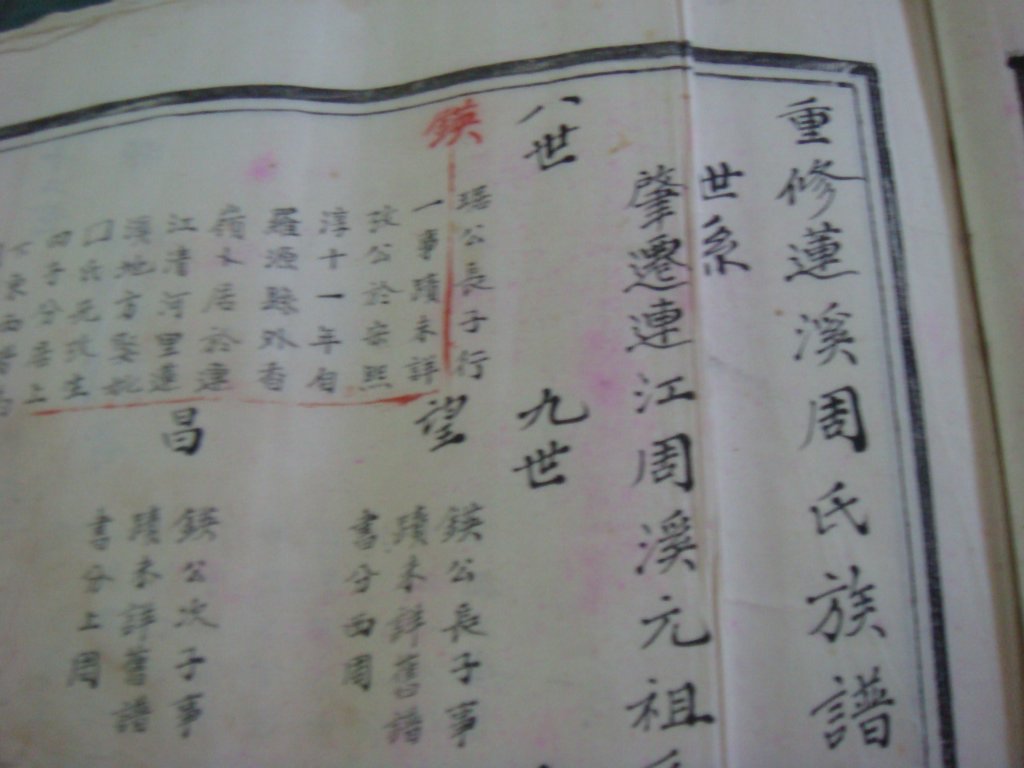 重修蓮溪周氏族譜
世系
肇遷連江周溪元祖
八世
九世
鍈
琚公長子行
一事蹟未詳
攷公於宋熙
淳十一年自
羅源縣外
居於連
江清河里蓮
溪地方娶
氏元攷生
四子分居上
下東西
望
鍈公長子事
蹟未詳舊譜
書分西周
昌
鍈公次子事
蹟未詳舊譜
書分上周